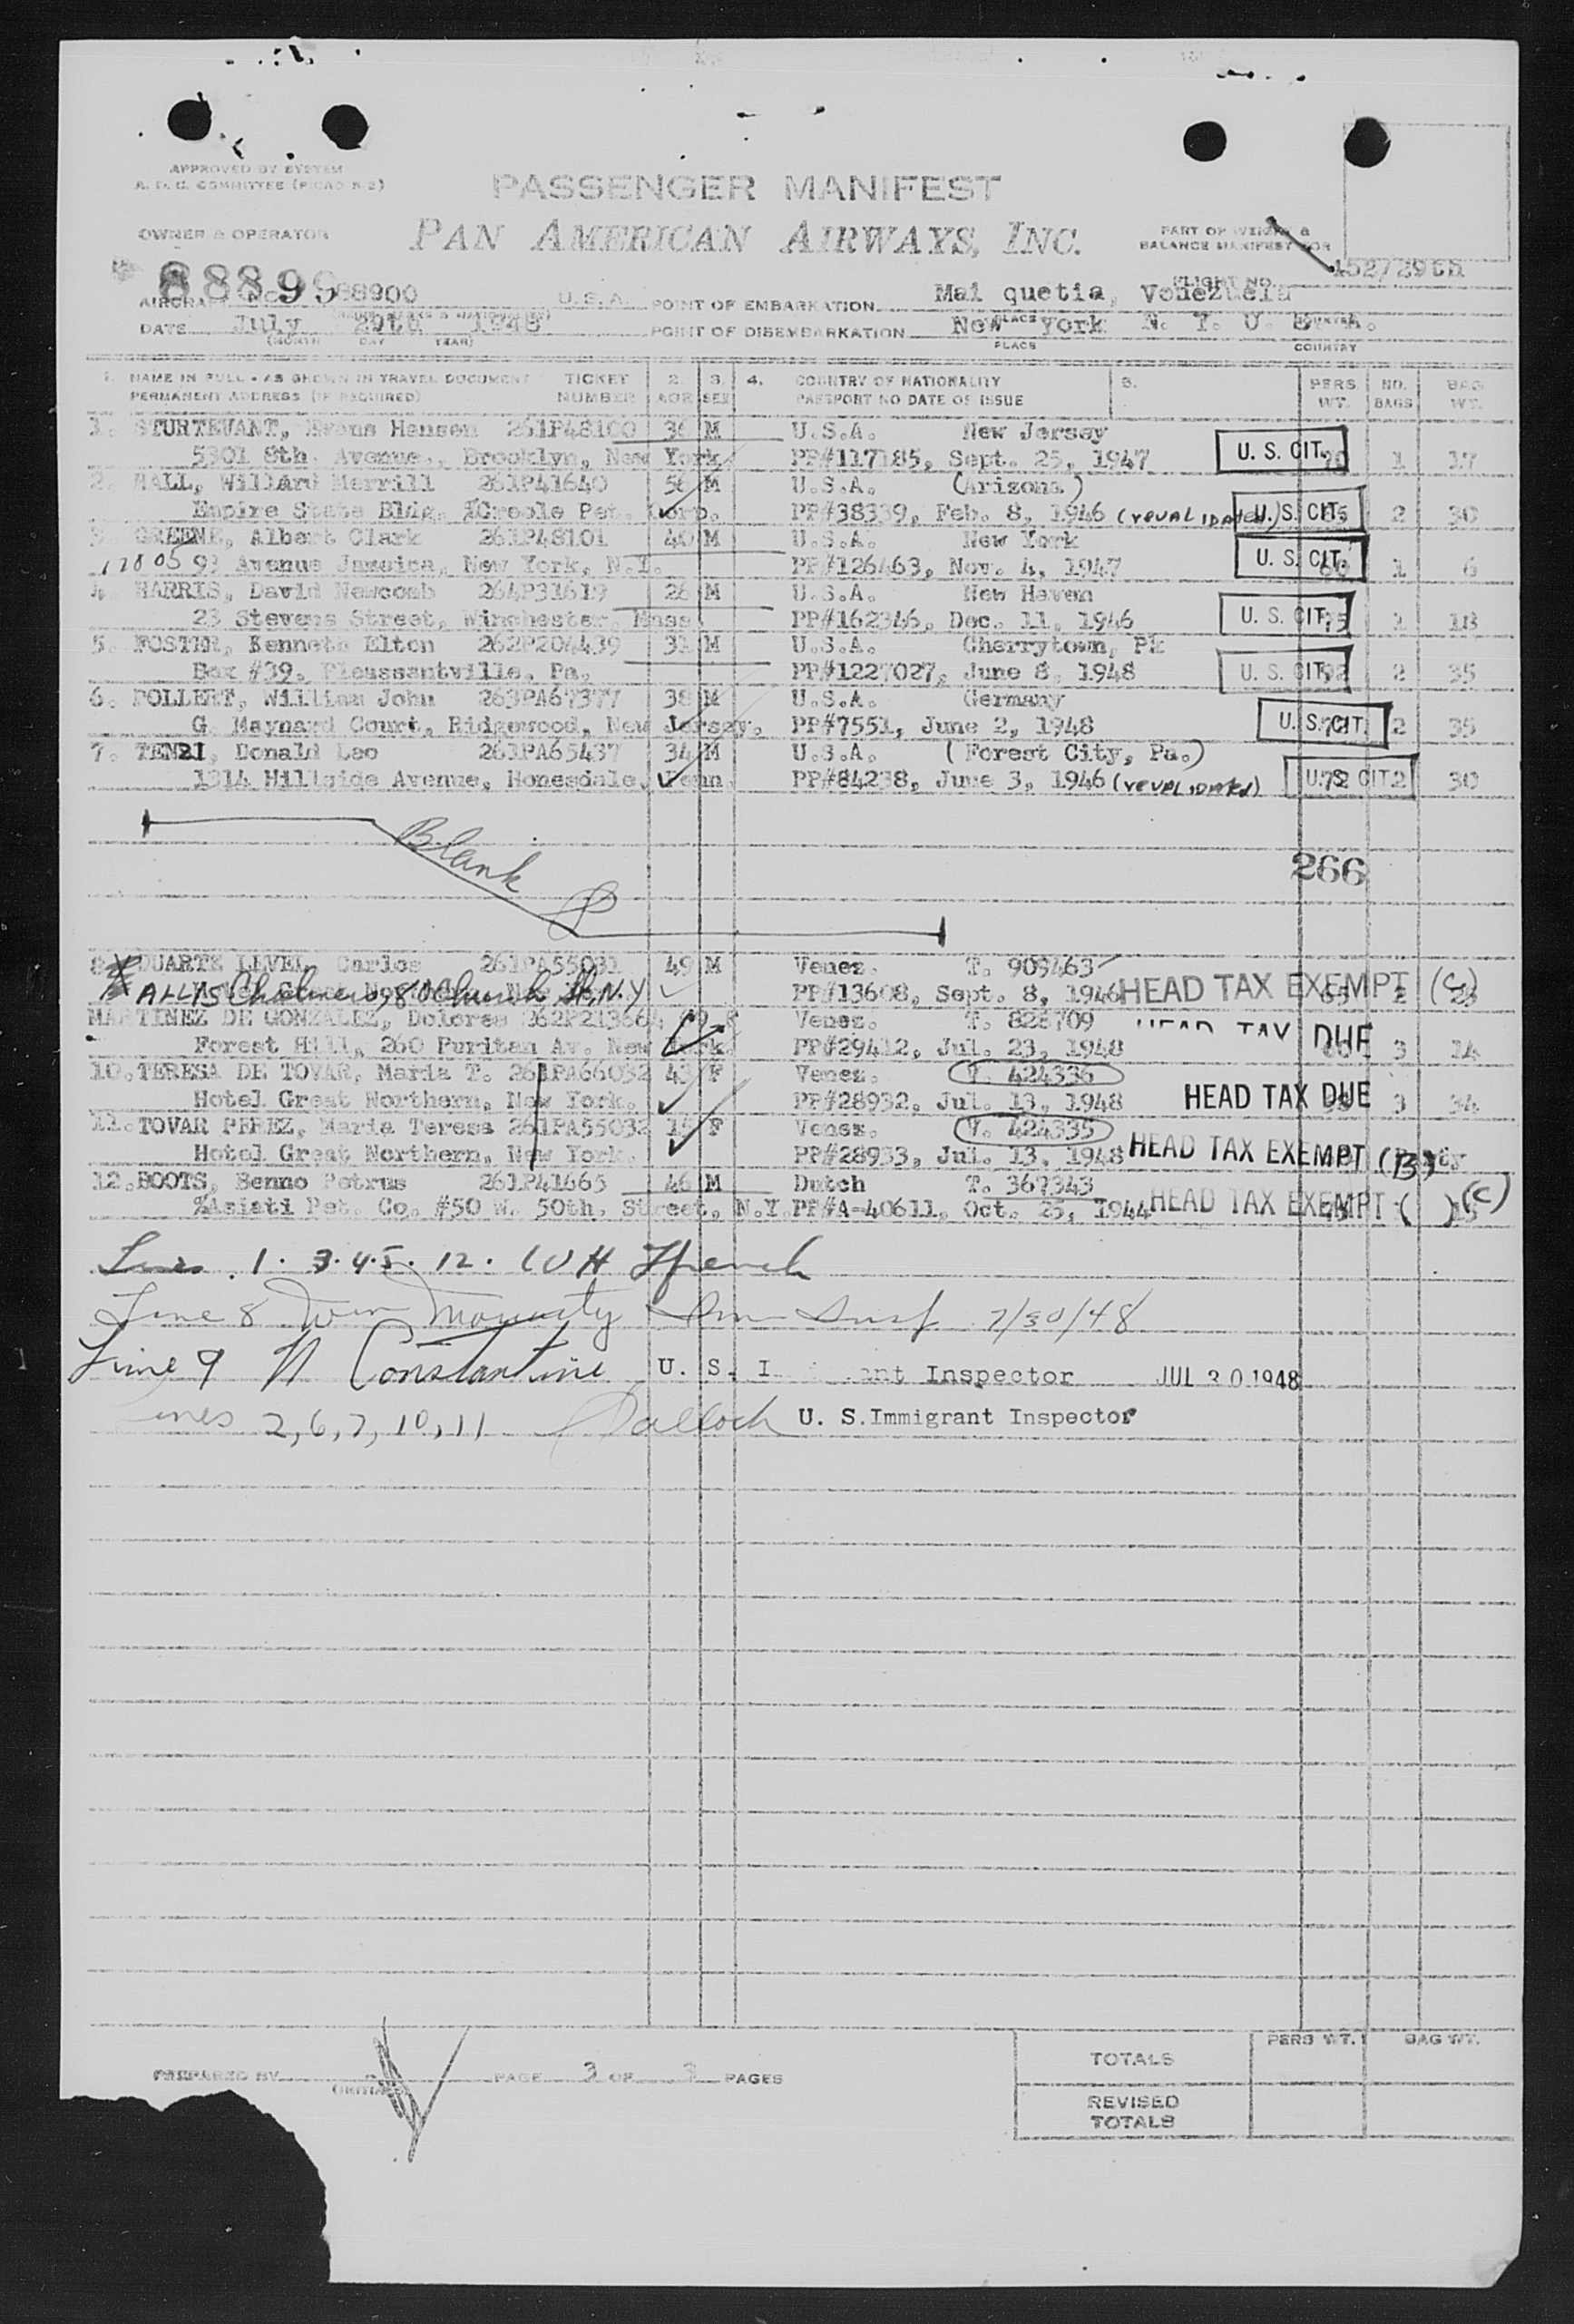 APPROVED BY SYSTEM
A. T. C. COMMITTEE
PASSENGER MANIFEST
OWNER & OPERATOR
PAN AMERICAN AIRWAYS, INC.
PART OF WEIGHT &
BALANCE MANIFEST FOR
88899
152/29th
FLIGHT NO.
AIRCRAFT NO. 88900 U.S.A. POINT OF EMBARKATION Mai quetia, Venezuela
DATE July 29th 1948 POINT OF DISEMBARKATION New York N. Y. U. S. A.
(MONTH DAY YEAR) PLACE COUNTRY
1. NAME IN FULL - AS SHOWN IN TRAVEL DOCUMENT TICKET 2. 3. 4. COUNTRY OF NATIONALITY 5. PERS NO. BAG
PERMANENT ADDRESS (IF REQUIRED) NUMBER AGE SEX PASSPORT NO DATE OF ISSUE WT. BAGS WT.
1. STURTEVANT, Hansen 261P48100 M U.S.A. New Jersey
5301 8th. Avenue., Brooklyn, New York. PP#117185, Sept. 25, 1947 U. S. CIT. 1 17
2. HALL, Willard Merrill 261P41640 56 M U.S.A. (Arizona)
Empire State Bldg. %Creole Pet. Corp. PP#38339, Feb. 8, 1946 (revalidated) U. S. CIT. 2 30
3. GREENE, Albert Clark 261P48101 40 M U.S.A. New York
17805 93 Avenue Jamaica, New York, N.Y. PP#126463, Nov. 4, 1947 U. S. CIT. 1 6
4. HARRIS, David Newcomb 264P31619 28 M U.S.A. New Haven
23 Stevens Street, Winchester, Mass. PP#162346, Dec. 11, 1946 U. S. CIT. 1 18
5. FOSTER, Kenneth Elton 262P204439 31 M U.S.A. Cherrytown, Pa
Box #39. Pleassantville. Pa. PP#1227027, June 8, 1948 U. S. CIT. 2 35
6. FOLLERT, William John 263PA67377 38 M U.S.A. Germany
G. Maynard Court, Ridgewood, New Jersey. PP#7551, June 2, 1948 U. S. CIT. 2 35
7. TENZI, Donald Leo 261PA65437 34 M U.S.A. (Forest City, Pa.)
1314 Hillside Avenue, Honesdale, Penn. PP#84238, June 3, 1946 (revalidated) U. S. CIT. 72 2 30
Blank
266
8. DUARTE LEVEL, Carlos 261PA55031 49 M Venez. T. 909463
Allis Chalmers, 80 Church St, N.Y PP#13608, Sept. 8, 1946 HEAD TAX EXEMPT (C)
MARTINEZ DE GONZALEZ, Dolores 262P213664 F Venez. T. 828709
Forest Hill, 260 Puritan Av. New York. PP#29412, Jul. 23, 1948 HEAD TAX DUE 3 14
10. TERESA DE TOVAR, Maria T. 261PA66032 43 F Venez. V. 424336
Hotel Great Northern, New York. PP#28932, Jul. 13, 1948 HEAD TAX DUE 3 34
11. TOVAR PEREZ, Maria Teresa 261PA55032 15 F Venez. V. 424335
Hotel Great Northern, New York. PP#28933, Jul. 13, 1948 HEAD TAX EXEMPT (B)
12. BOOTS, Benno Petrus 261P41665 46 M Dutch T. 367343
%Asiati Pet. Co. #50 W. 50th. Street, N.Y PP#A-40611, Oct. 25, 1944 HEAD TAX EXEMPT ( ) (C)
Lines 1. 3. 4. 5. 12. W H French
Line 8 Moriarty Imm Insp 7/30/48
Line 9 N Constantine U. S. I ant Inspector JUL 30 1948
Lines 2, 6, 7, 10, 11 U. S. Immigrant Inspector
PREPARED BY (INITIALS) PAGE 3 OF 3 PAGES
PERS WT. BAG WT.
TOTALS
REVISED
TOTALS